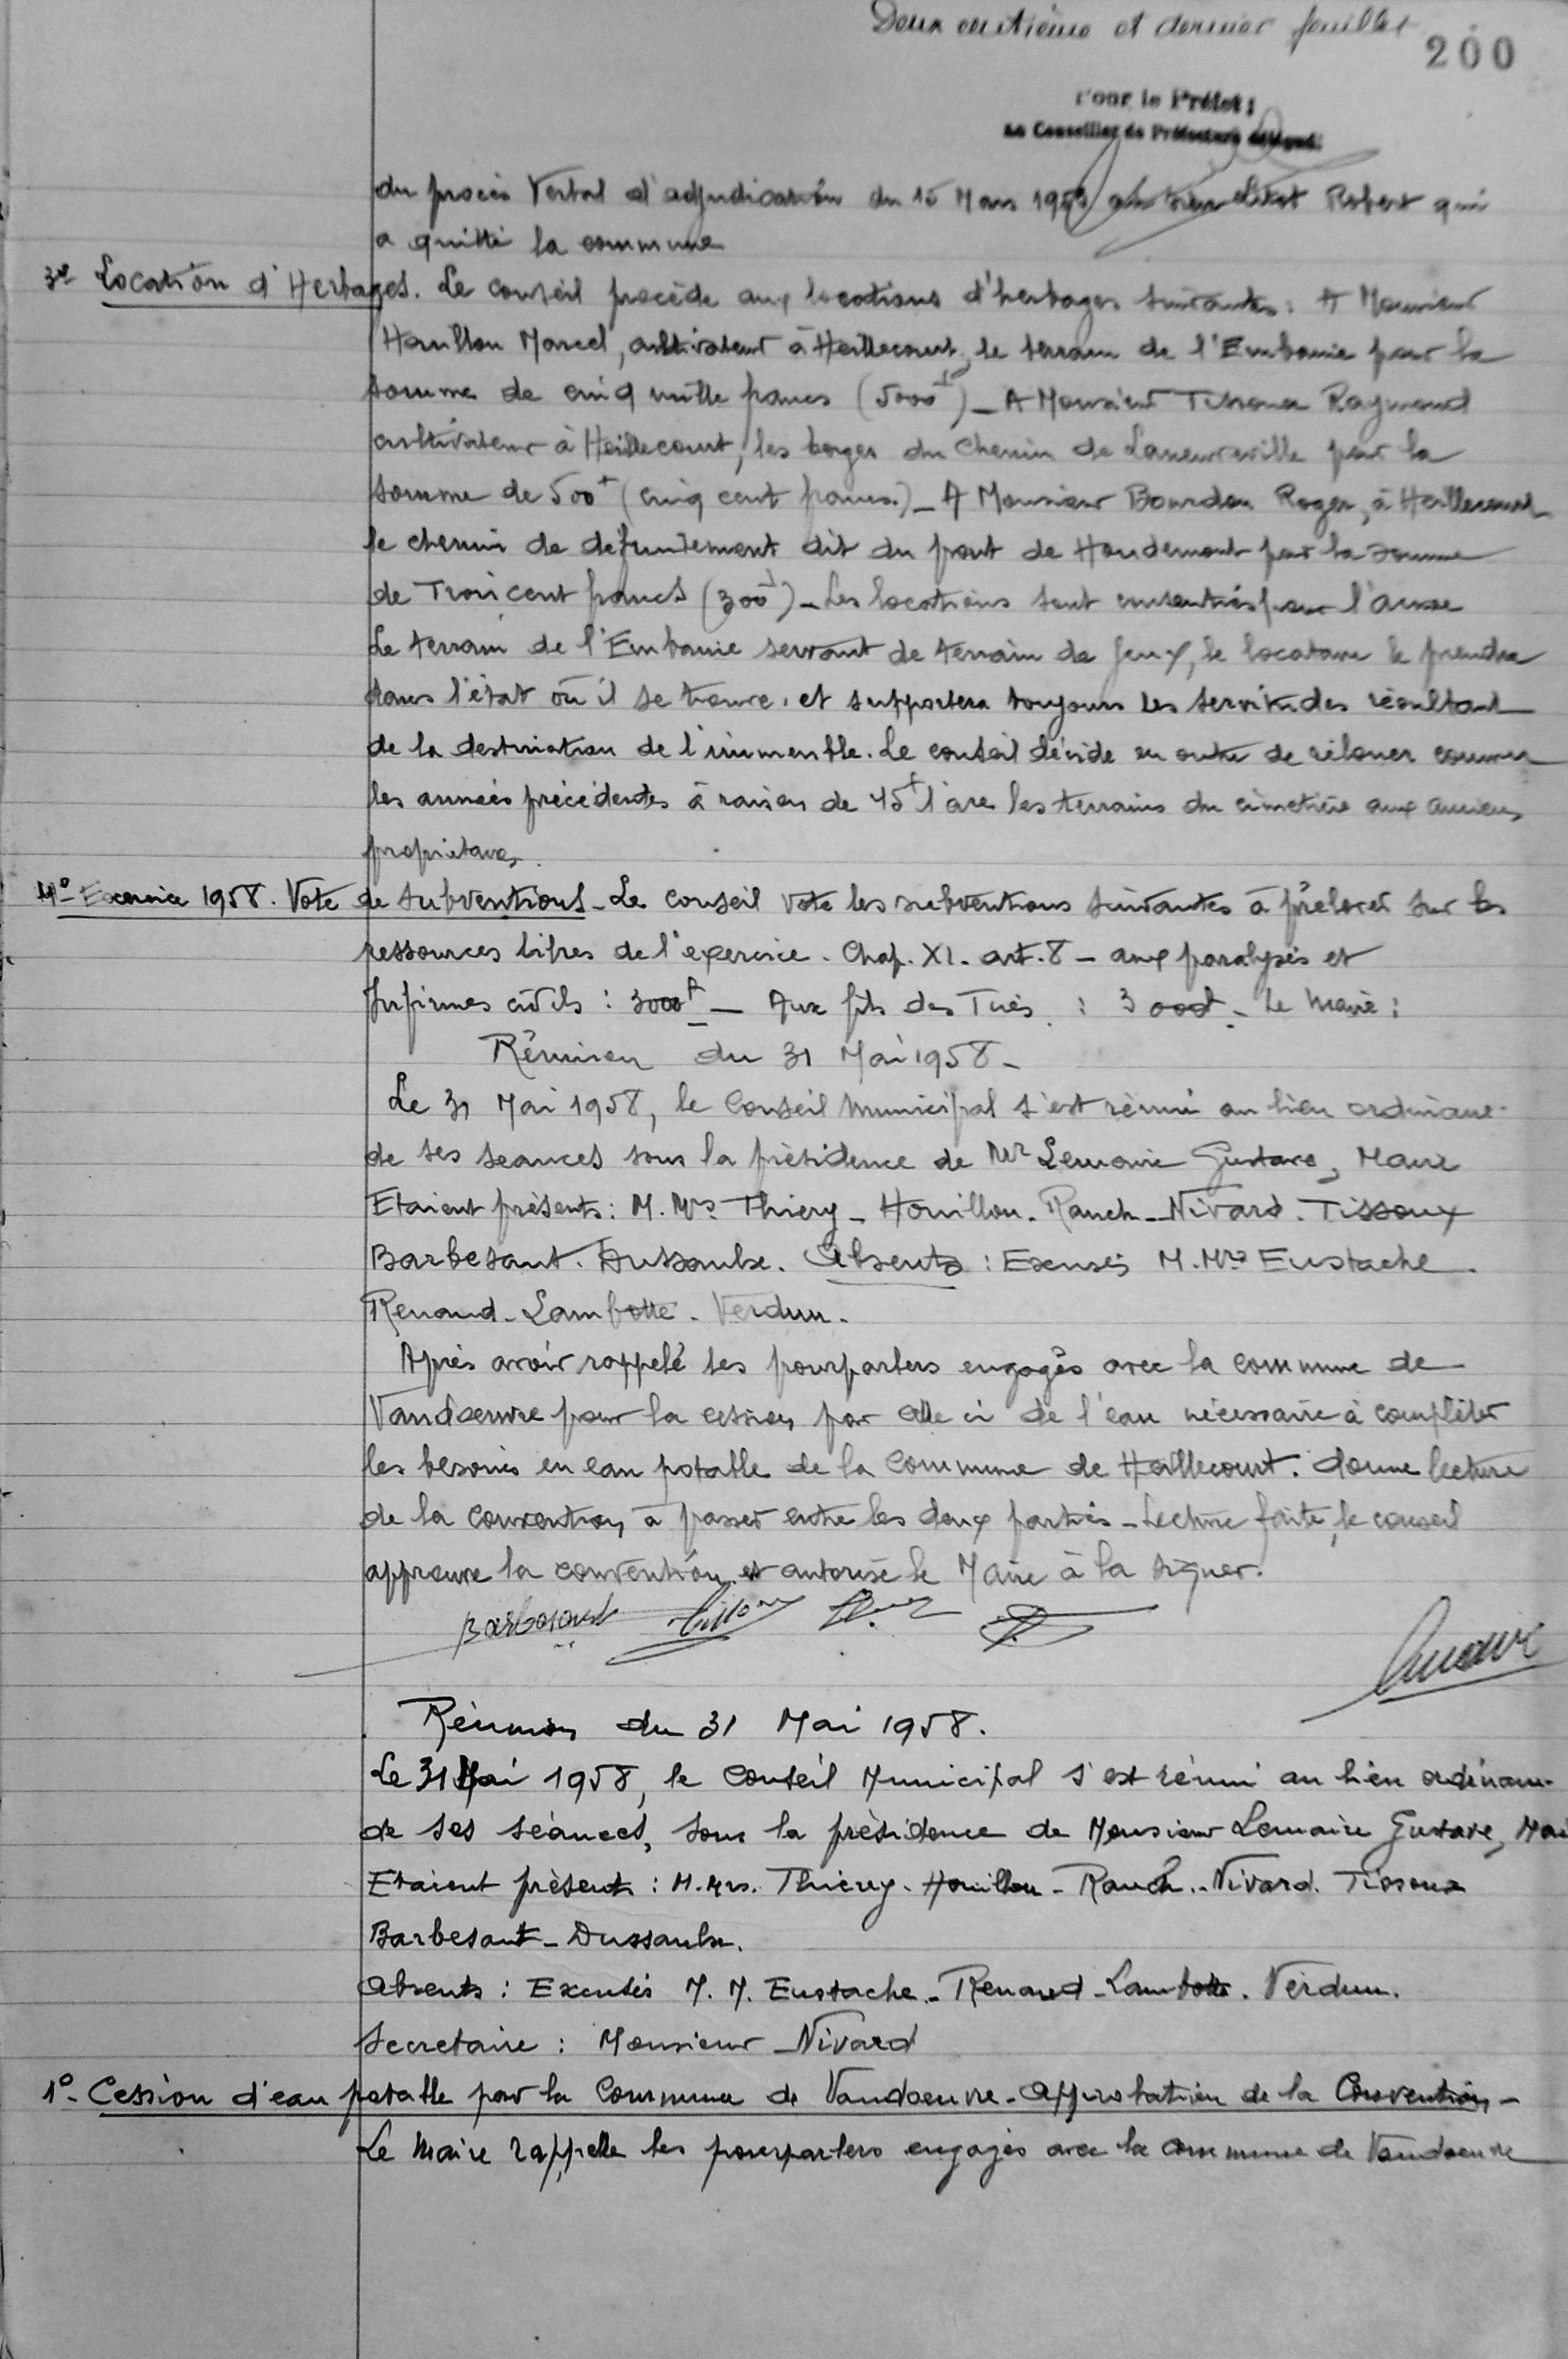 Deux centième et dernier feuillet
200
Pour le Préfet :
Le Conseiller de Préfecture délégué.
du procès Verbal d'adjudication du 15 Mars Robert qui
a quitté la commune
3º Location d'Herbages. Le conseil procède aux locations d'herbages suivantes : A Monsieur
Houillon Marcel, cultivateur à Heillecourt, le terrain de l'Embanie pour la
somme de cinq mille francs (5000f) - A Monsieur Tissoux Raymond
cultivateur à Heillecourt, les berges du chemin de Laneuveville pour la
somme de 500f (cinq cent francs.) - A Monsieur Bourdon Roger, à Heillecourt
le chemin de défruitement dit du pont de Houdemont pour la somme
de Trois cent francs (300f) - Les locations sont consenties pour l'année
Le terrain de l'Embanie servant de terrain de jeux, le locataire le prendra
dans l'état où il se trouve, et supportera toujours les servitudes résultant
de la destination de l'immeuble. Le conseil décide en outre de rélouer comme
les années précédentes à raison de 15f l'are les terrains du cimetière aux anciens
propriétaires.
4º- Exercice 1958. Vote de subventions - Le conseil vote les subventions suivantes à prélever sur les
ressources libres de l'exercice. Chap. XI. art. 8 - aux paralysés et
Infirmes civils : 3000f - Aux fils des Tués : 3000f - Le Maire :
Réunion du 31 Mai 1958 -
Le 31 Mai 1958, le Conseil Municipal s'est réuni au lieu ordinaire
de ses seances sous la présidence de Mr Lemaire Gustave, Maire
Etaient présents : M. Mrs Thiery - Houillon. Rauch - Nivard. Tissoux
Barbesant. Dussaulx. Absents : Excusés M. Mrs Eustache.
Renaud - Lambotte. Verdun.
Après avoir rappelé les pourparlers engagés avec la commune de
Vandoeuvre pour la cession par elle ci de l'eau nécessaire à compléter
les besoins en eau potable de la Commune de Heillecourt. donne lecture
de la convention à passer entre les deux parties - Lecture faite, le conseil
approuve la convention et autorise le Maire à la signer.
Barbesant Tissoux
Lemaire
Réunion du 31 Mai 1958.
Le 31 Mai 1958, le Conseil Municipal s'est réuni au lieu ordinaire
de ses séances, sous la présidence de Monsieur Lemaire Gustave, Mai
Etaient présents : M. Mrs. Thiery. Houillon - Rauch. - Nivard. Tissoux
Barbesant - Dussaulx.
Absents : Excusés M. M. Eustache. - Renaud - Lambotte. Verdun.
Secretaire : Monsieur Nivard
1º- Cession d'eau potable par la Commune de Vandoeuvre - Approbation de la Convention -
Le Maire rappelle les pourparlers engagés avec la commune de Vandoeuvre